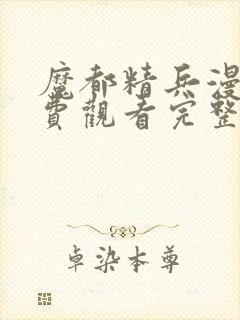 魔都精兵漫
費觀看完整
卓染本尊